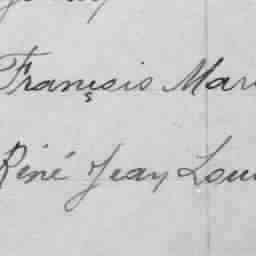 François Mar
Réné Jean Lou